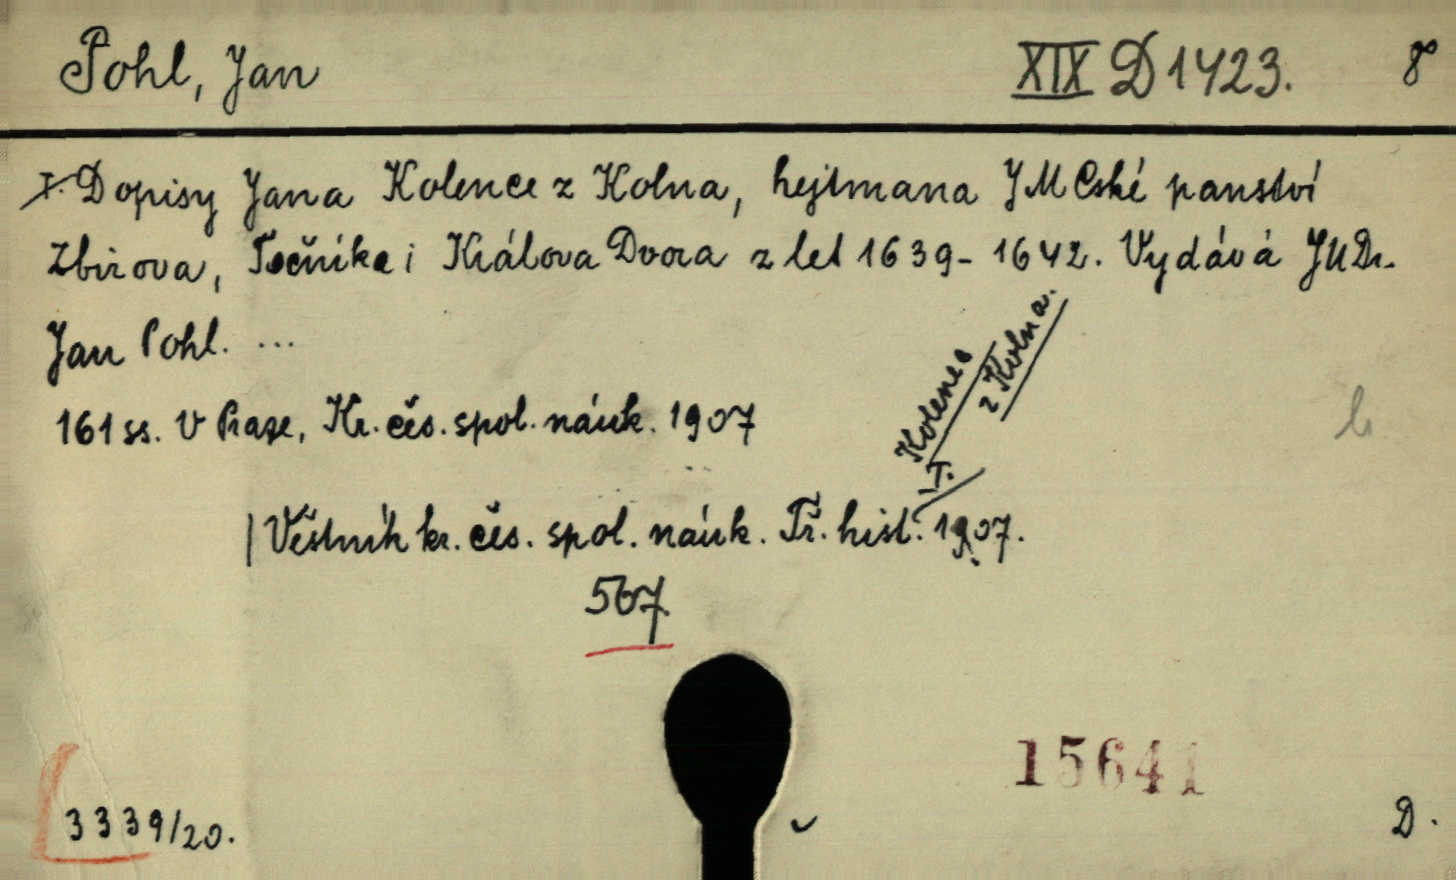 Pohl, Jan XIX D 1423. 8°
I. Dopisy Jana Kolence z Kolna, hejtmana JMCské panství
Zbirova, Točníka i Králova Dvora z let 1639-1642. Vydává JUDr.
Jan Pohl. ...
161 ss. V Praze, Kr. čes. spol. náuk. 1907
Kolenec
z Kolna.
I.
| Věstník kr. čes. spol. náuk. Tř. hist. 1907.
567
15641
3339/20.
D.